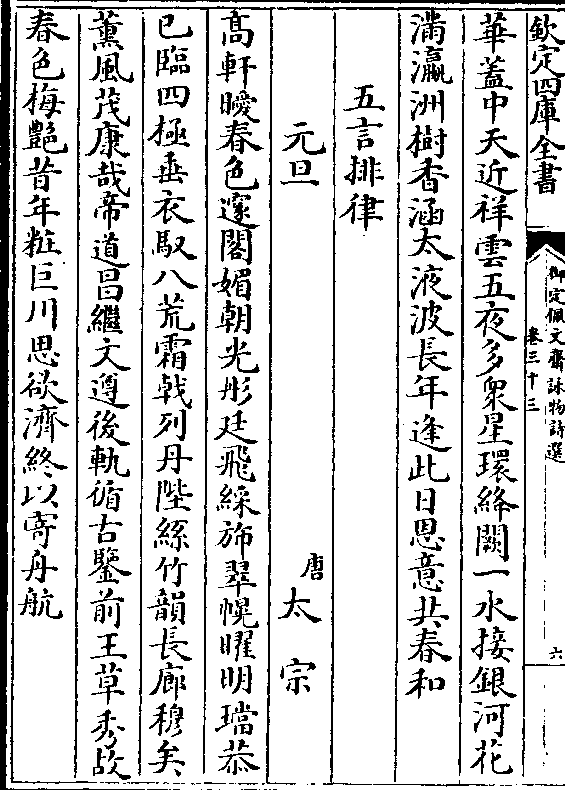 欽定四庫全書
御定佩文齋詠物詩選
卷三十三
六
華蓋中天近祥雲五夜多衆星環絳闕一水接銀河花
滿瀛洲樹香涵太液波長年逢此日恩意共春和
五言排律
元旦
唐太宗
高軒曖春色邃閣媚朝光彤廷飛綵斾翠幌曜明璫恭
已臨四極垂衣馭八荒霜㦸列丹陛絲竹韻長廊穆矣
薫風茂康哉帝道昌繼文遵後軌循古鑒前王草秀故
春色梅艶昔年粧巨川思欲濟終以寄舟航